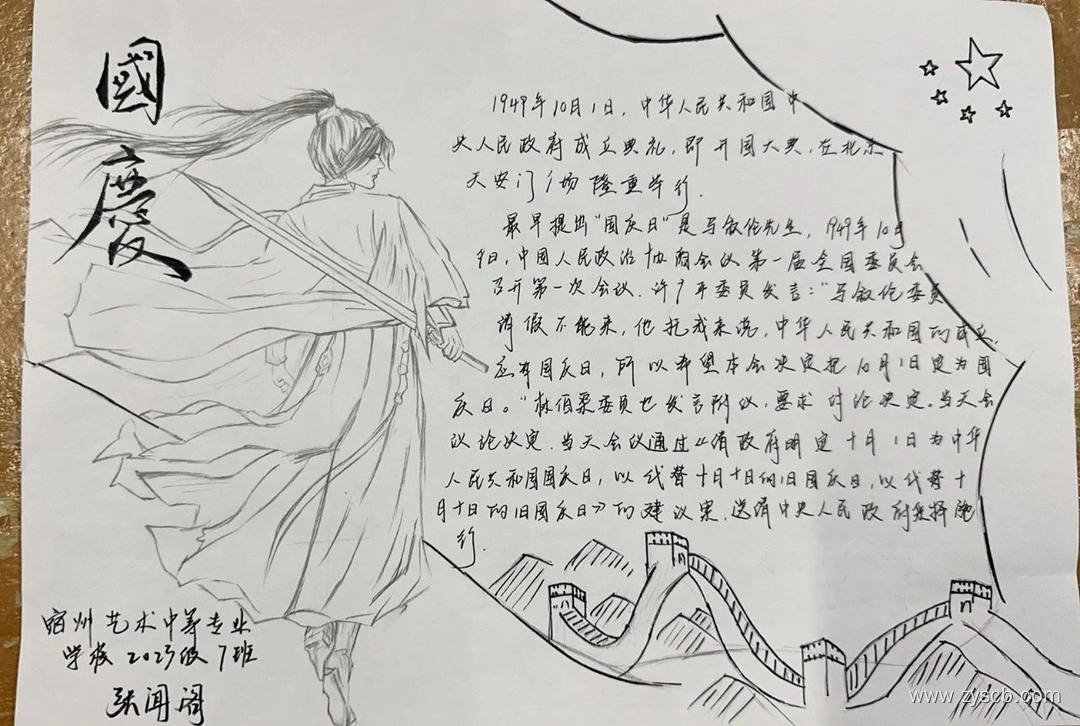 國
慶
1949年10月1日,中华人民共和国中
央人民政府成立典礼,即开国大典,在北京
天安门广场隆重举行.
最早提出"国庆日"是马叙伦先生,1949年10月
9日,中国人民政治协商会议第一届全国委员会
召开第一次会议.许广平委员发言:"马叙伦委员
请假不能来,他托我来说,中华人民共和国的成立,
应有国庆日,所以希望本会决定把10月1日定为国
庆日。"林伯渠委员也发言附议,要求讨论决定.当天会
议论决定.当天会议通过《请政府明定十月1日为中华
人民共和国国庆日,以代替十月十日的旧国庆日,以代替十
月十日的旧国庆日》的建议案.送请中央人民政府采择施
行.
宿州艺术中等专业
学校 2023级7班
张闻阁
www.zyscb.com